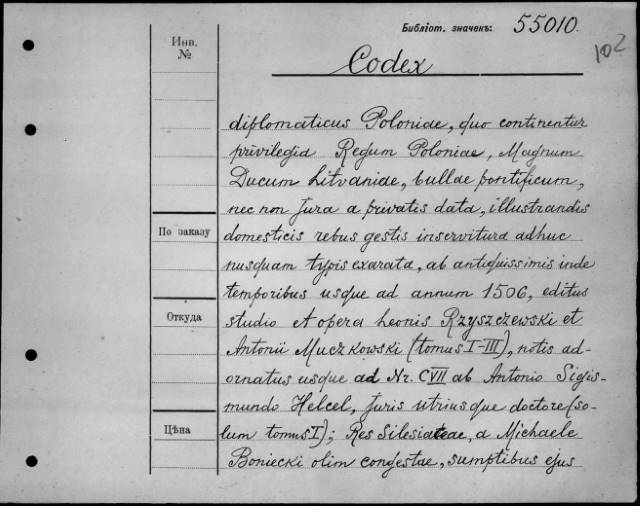 Библіот. значекъ: 55010.
102
Инв. №
Codex
diplomaticus Poloniae, quo continentur
privilegia Regum Poloniae, Magnum
Ducum Litvaniae, bullae pontificum,
nec non Jura a privatis data, illustrandis
По заказу
domesticis rebus gestis inservitura adhuc
nusquam typis exarata, ab antiquissimis inde
temporibus usque ad annum 1506, editus
Откуда
studio et opera Leonis Rzyszczewski et
Antonii Muczkowski (tomus I-III), notis ad-
ornatus usque ad Nr. CVII ab Antonio Sigis-
mundo Helcel, Juris utriusque doctore (so-
Цѣна
lum tomus I); Res Silesiacae, a Michaele
Boniecki olim congestae, sumptibus ejus